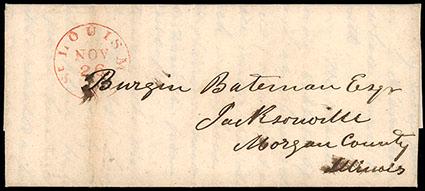 ST LOUIS M
NOV
26
Burgin Bateman Esqr
Jacksonville
Morgan County
Illinois